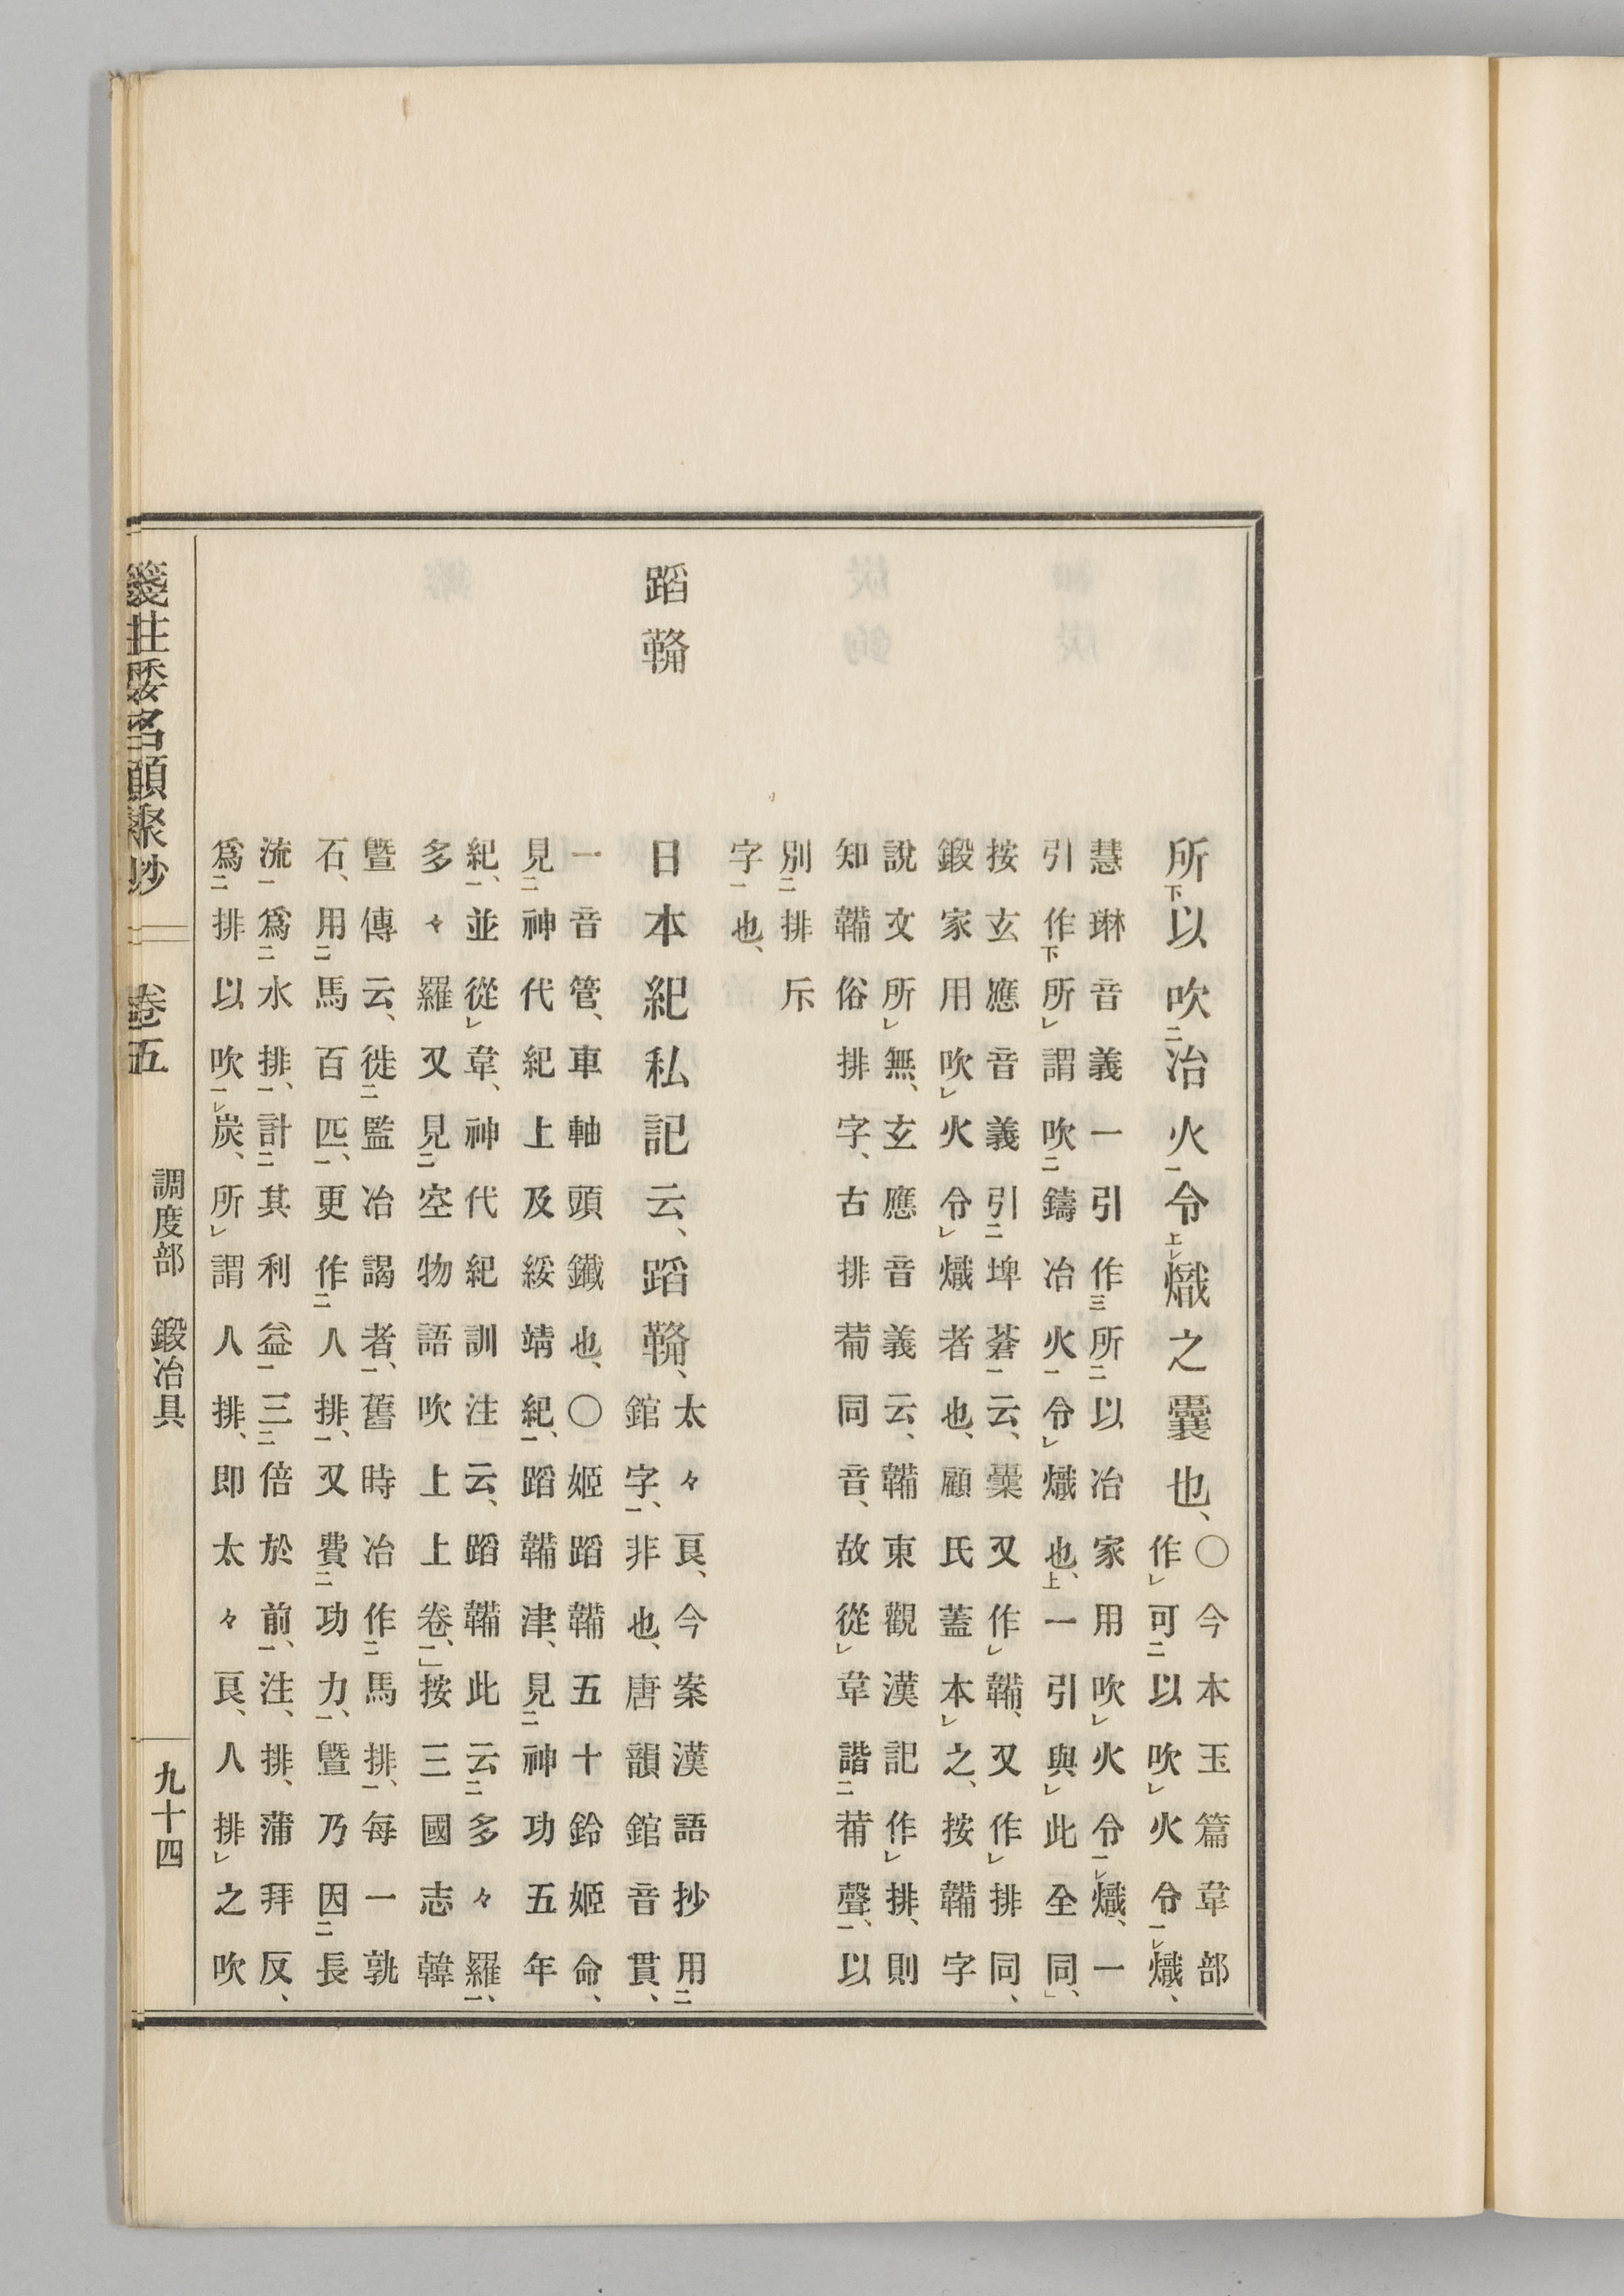 所下以吹二冶火一令上レ熾之囊也、
○今本玉篇韋部
作レ可二以吹レ火令一レ熾、
慧琳音義一引作三所二以冶家用吹レ火令一レ熾、一
引作下所レ謂吹二鑄冶火一令レ熾也、上一引與レ此全同、」
按玄應音義引二埤蒼一云、橐又作レ韛、又作レ排同、
鍛家用吹レ火令レ熾者也、顧氏蓋本レ之、按韛字
說文所レ無、玄應音義云、韛東觀漢記作レ排、則
知韛俗排字、古排葡同音、故從レ韋諧二葡聲一、以
別二排斥
字一也、
蹈鞴
日本紀私記云、蹈鞴、
太々良、今案漢語抄用二
錧字一、非也、唐韻錧音貫、
一音管、車軸頭鐵也、○姬蹈韛五十鈴姬命、
見二神代紀上及綏靖紀一、蹈韛津、見二神功五年
紀一、並從レ韋、神代紀訓注云、蹈韛此云二多々羅一、
多々羅又見二空物語吹上上卷一、」按三國志韓
曁傳云、徙二監冶謁者一、舊時冶作二馬排一、每一孰
石、用二馬百匹一、更作二人排一、又費二功力一、曁乃因二長
流一爲二水排一、計二其利益一三二倍於前一、注、排、蒲拜反、
爲二排以吹一レ炭、所レ謂人排、即太々良、人排レ之吹
箋注倭名類聚抄 卷五 調度部 鍛冶具 九十四